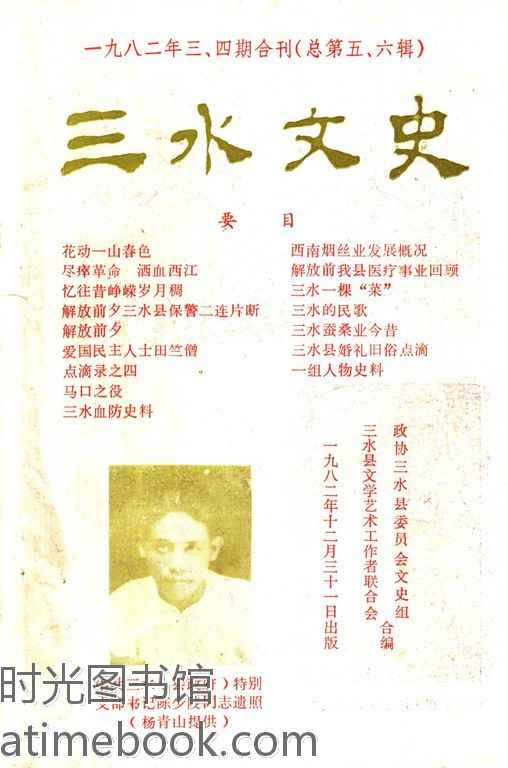 一九八二年三、四期合刊(总第五、六辑)
三水文史
要 目
花动一山春色
尽瘁革命 洒血西江
忆往昔峥嵘岁月稠
解放前夕三水县保警二连片断
解放前夕
爱国民主人士田竺僧
点滴录之四
马口之役
三水血防史料
西南烟丝业发展概况
解放前我县医疗事业回顾
三水一棵“菜”
三水的民歌
三水蚕桑业今昔
三水县婚礼旧俗点滴
一组人物史料
政协三水县委员会文史组
三水县文学艺术工作者联合会
合编
一九八二年十二月三十一日出版
特别
支部书记陈
同志遗照
(杨青山提供)
时光图书馆
atimebook.com